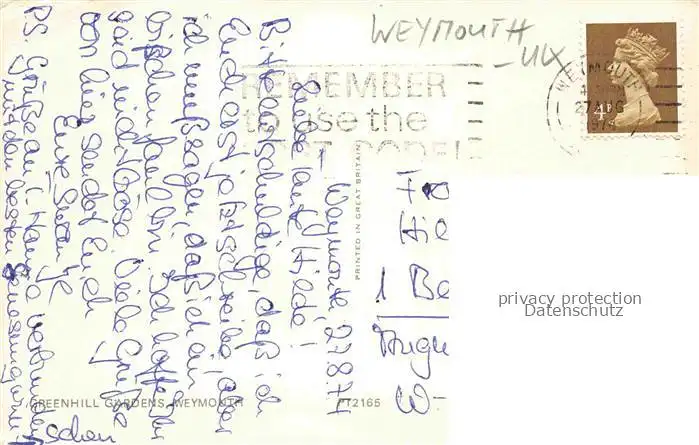 WEYMOUTH
- UK
REMEMBER
to use the
POST CODE
WEYMOUTH
27 AUG
1974
4P
Weymouth, 27.8.74
Liebe Tante Hilde!
Bitte entschuldige, daß ich
Euch erst jetzt schreibe, aber
ich muß sagen, daß ich ein
bißchen faul bin. Ich hoffe, Ihr
seid nicht böse. Viele Grüße
von hier sendet Euch
Eure
P.S. Grüße an verbunden
mit den besten Genesungswün-
schen
PRINTED IN GREAT BRITAIN
Hil
1 Be
W-
GREENHILL GARDENS, WEYMOUTH
PT2165
privacy protection
Datenschutz